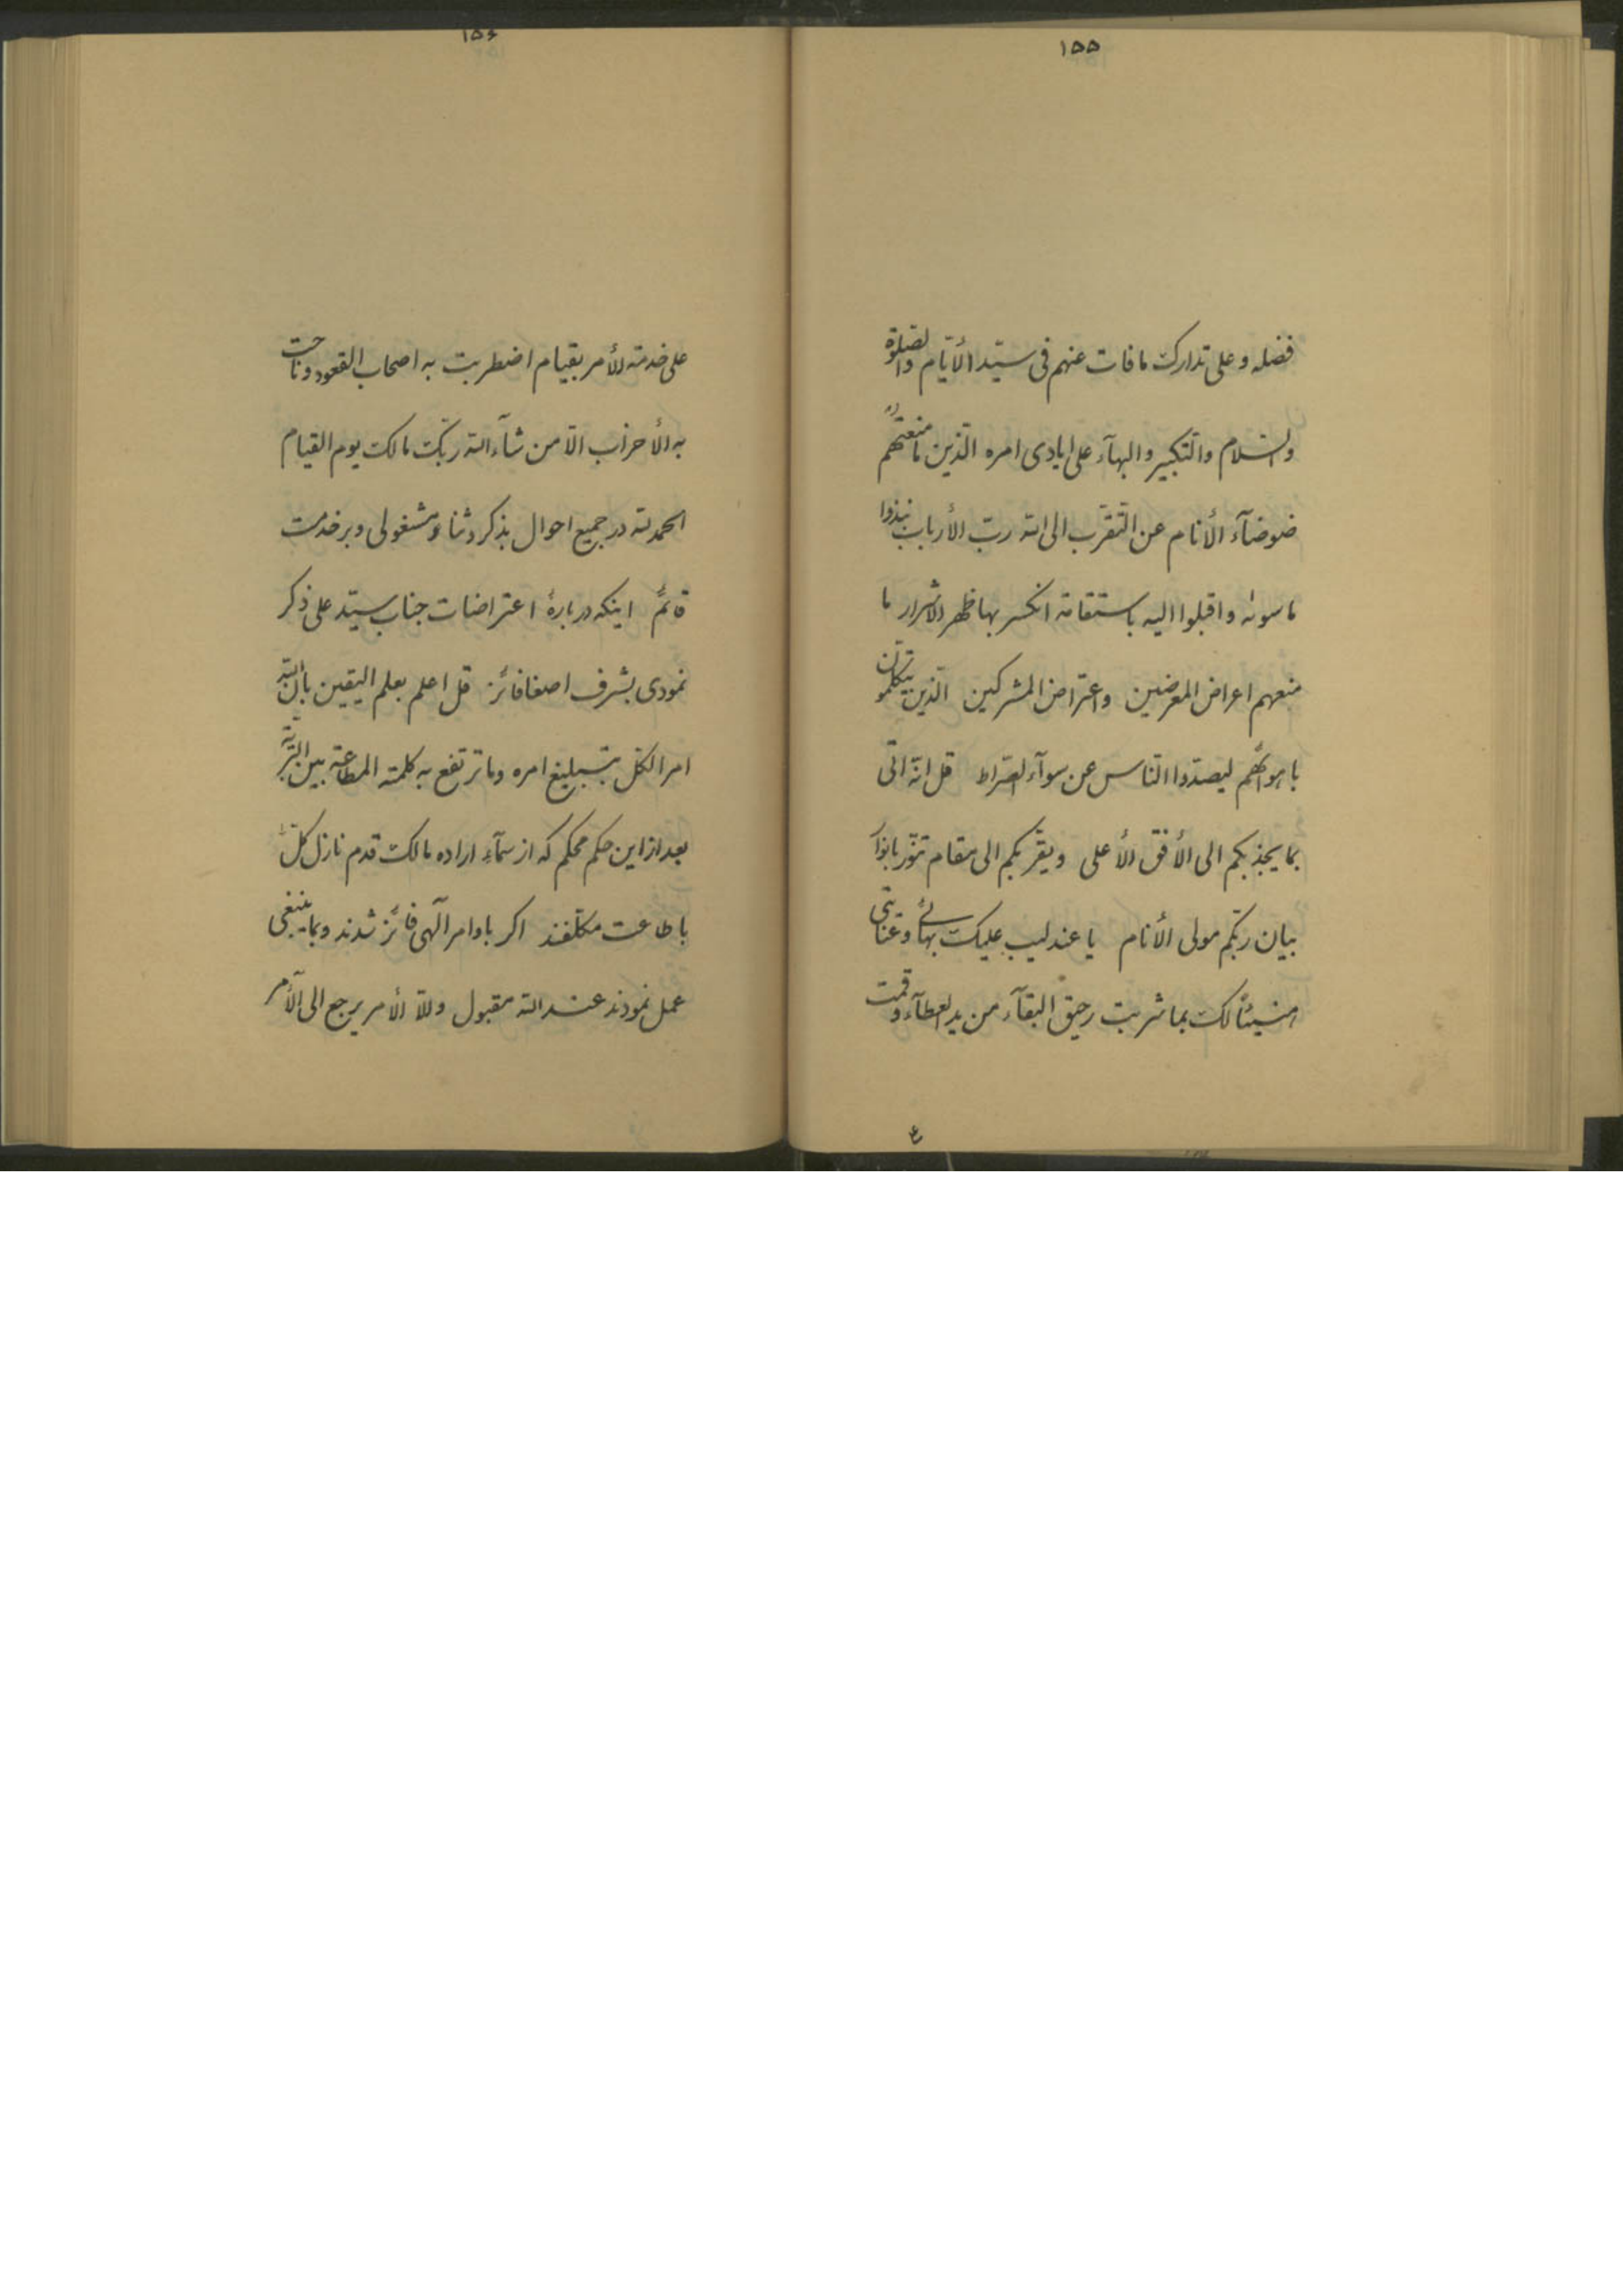 ١٥٥
فضله و على تدارك ما فات عنهم فى سيّد الأيّام والصّلوة
والسّلام والتّكبير و البهآء على ايادى امره الّذين ما منعتهم
ضوضآء الأنام عن التّقرّب الى الله ربّ الأرباب نبذوا
ما سوئه و اقبلوا اليه باستقامة انكسر بها ظهر الاشرار ما
منعهم اعراض المعرضين و اعتراض المشركين الّذين يتكلّمون
باهوائهم ليصدّوا النّاس عن سوآء الصّراط قل انّه اتى
بما يجذبكم الى الأفق الأعلى و يقرّبكم الى مقام تنوّر بانوار
بيان ربّكم مولى الأنام يا عندليب عليك بهائى و عنايتى
هنيئاً لك بما شربت رحيق البقآء من يد العطآء و قمت
١٥٦
على خدمة الأمر بقيام اضطربت به اصحاب القعود و ناحت
به الأحزاب الّا من شآء الله ربّك مالك يوم القيام
الحمد لله در جميع احوال بذكر و ثنا مشغولى و بر خدمت
قائم اينكه دربارهٔ اعتراضات جناب سيّد على ذكر
نمودى بشرف اصغا فائز قل اعلم بعلم اليقين بانّ الله
امر الكلّ بتبليغ امره و ما ترتفع به كلمته المطاعة بين البريّة
بعد از اين حكم محكم كه از سمآء اراده مالك قدم نازل كلّ
باطاعت مكلّفند اكر باوامر آلهى فائز شدند و بما ينبغى
عمل نمودند عند الله مقبول و الّا الأمر يرجع الى الآمر